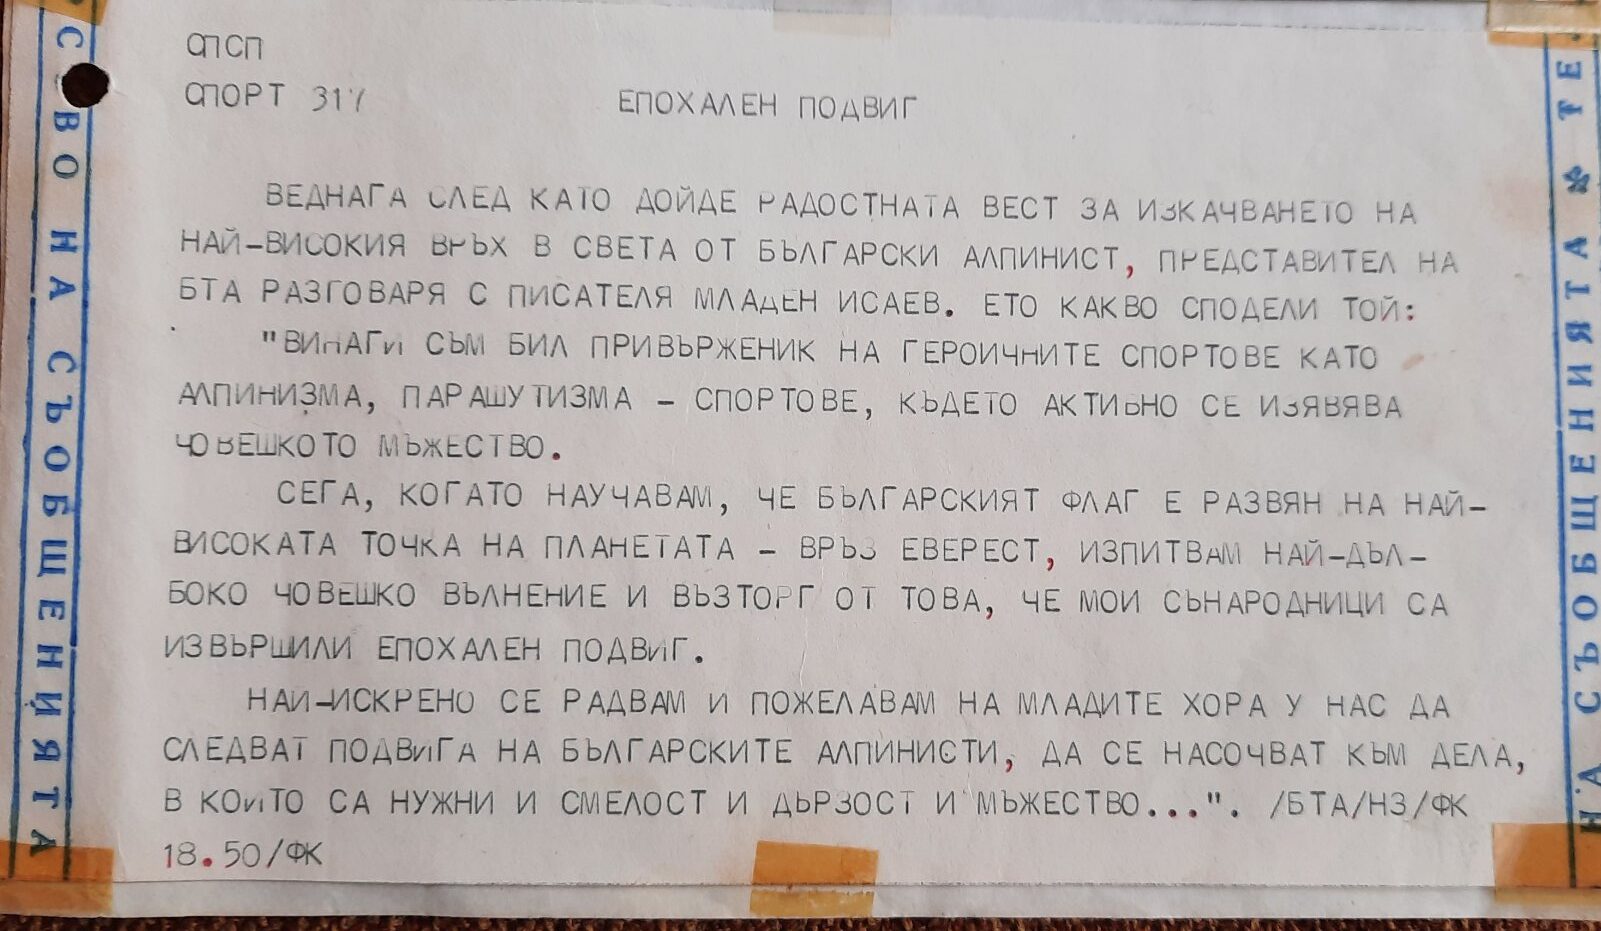 СПСП
СПОРТ 317
ЕПОХАЛЕН ПОДВИГ
ВЕДНАГА СЛЕД КАТО ДОЙДЕ РАДОСТНАТА ВЕСТ ЗА ИЗКАЧВАНЕТО НА
НАЙ-ВИСОКИЯ ВРЪХ В СВЕТА ОТ БЪЛГАРСКИ АЛПИНИСТ, ПРЕДСТАВИТЕЛ НА
БТА РАЗГОВАРЯ С ПИСАТЕЛЯ МЛАДЕН ИСАЕВ. ЕТО КАКВО СПОДЕЛИ ТОЙ:
"ВИНАГИ СЪМ БИЛ ПРИВЪРЖЕНИК НА ГЕРОИЧНИТЕ СПОРТОВЕ КАТО
АЛПИНИЗМА, ПАРАШУТИЗМА - СПОРТОВЕ, КЪДЕТО АКТИВНО СЕ ИЗЯВЯВА
ЧОВЕШКОТО МЪЖЕСТВО.
СЕГА, КОГАТО НАУЧАВАМ, ЧЕ БЪЛГАРСКИЯТ ФЛАГ Е РАЗВЯН НА НАЙ-
ВИСОКАТА ТОЧКА НА ПЛАНЕТАТА - ВРЪЗ ЕВЕРЕСТ, ИЗПИТВАМ НАЙ-ДЪЛ-
БОКО ЧОВЕШКО ВЪЛНЕНИЕ И ВЪЗТОРГ ОТ ТОВА, ЧЕ МОИ СЪНАРОДНИЦИ СА
ИЗВЪРШИЛИ ЕПОХАЛЕН ПОДВИГ.
НАЙ-ИСКРЕНО СЕ РАДВАМ И ПОЖЕЛАВАМ НА МЛАДИТЕ ХОРА У НАС ДА
СЛЕДВАТ ПОДВИГА НА БЪЛГАРСКИТЕ АЛПИНИСТИ, ДА СЕ НАСОЧВАТ КЪМ ДЕЛА,
В КОИТО СА НУЖНИ И СМЕЛОСТ И ДЪРЗОСТ И МЪЖЕСТВО...". /БТА/НЗ/ФК
18.50/ФК
НА СЪОБЩЕНИЯТА
НА СЪОБЩЕНИЯТА * ТЕ